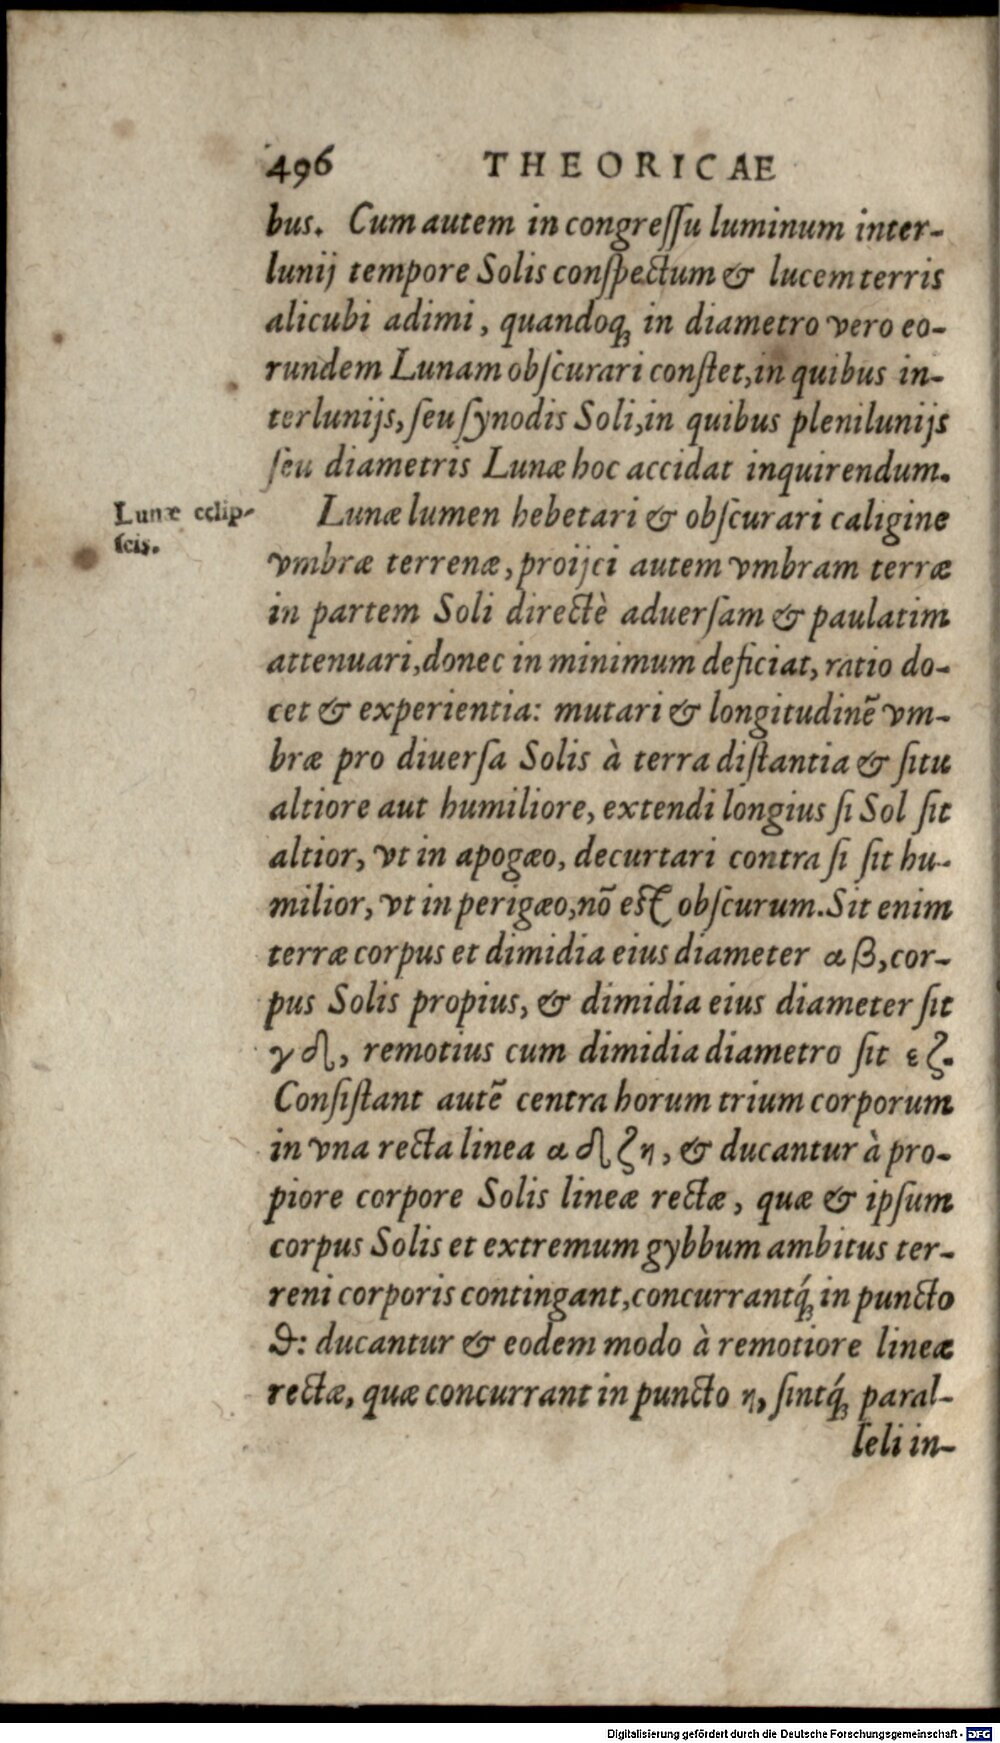 496 THEORICAE
bus. Cum autem in congreſſu luminum inter-
lunij tempore Solis conſpectum & lucem terris
alicubi adimi, quandoq́ꝫ in diametro vero eo-
rundem Lunam obſcurari conſtet, in quibus in-
terlunijs, ſeu ſynodis Soli, in quibus plenilunijs
ſeu diametris Lunæ hoc accidat inquirendum.
Lunæ eclip-
ſcis.
Lunæ lumen hebetari & obſcurari caligine
vmbræ terrenæ, proijci autem vmbram terræ
in partem Soli directè aduerſam & paulatim
attenuari, donec in minimum deficiat, ratio do-
cet & experientia: mutari & longitudinẽ vm-
bræ pro diuerſa Solis à terra diſtantia & ſitu
altiore aut humiliore, extendi longius ſi Sol ſit
altior, vt in apogæo, decurtari contra ſi ſit hu-
milior, vt in perigæo, nõ eſt obſcurum. Sit enim
terræ corpus et dimidia eius diameter α β, cor-
pus Solis propius, & dimidia eius diameter ſit
γ δ, remotius cum dimidia diametro ſit ε ζ.
Conſiſtant autẽ centra horum trium corporum
in vna recta linea α δ ζ η, & ducantur à pro-
piore corpore Solis lineæ rectæ, quæ & ipſum
corpus Solis et extremum gybbum ambitus ter-
reni corporis contingant, concurrantq́ꝫ in puncto
ϑ: ducantur & eodem modo à remotiore lineæ
rectæ, quæ concurrant in puncto η, ſintq́ꝫ paral-
leli in-
Digitalisierung gefördert durch die Deutsche Forschungsgemeinschaft - DFG